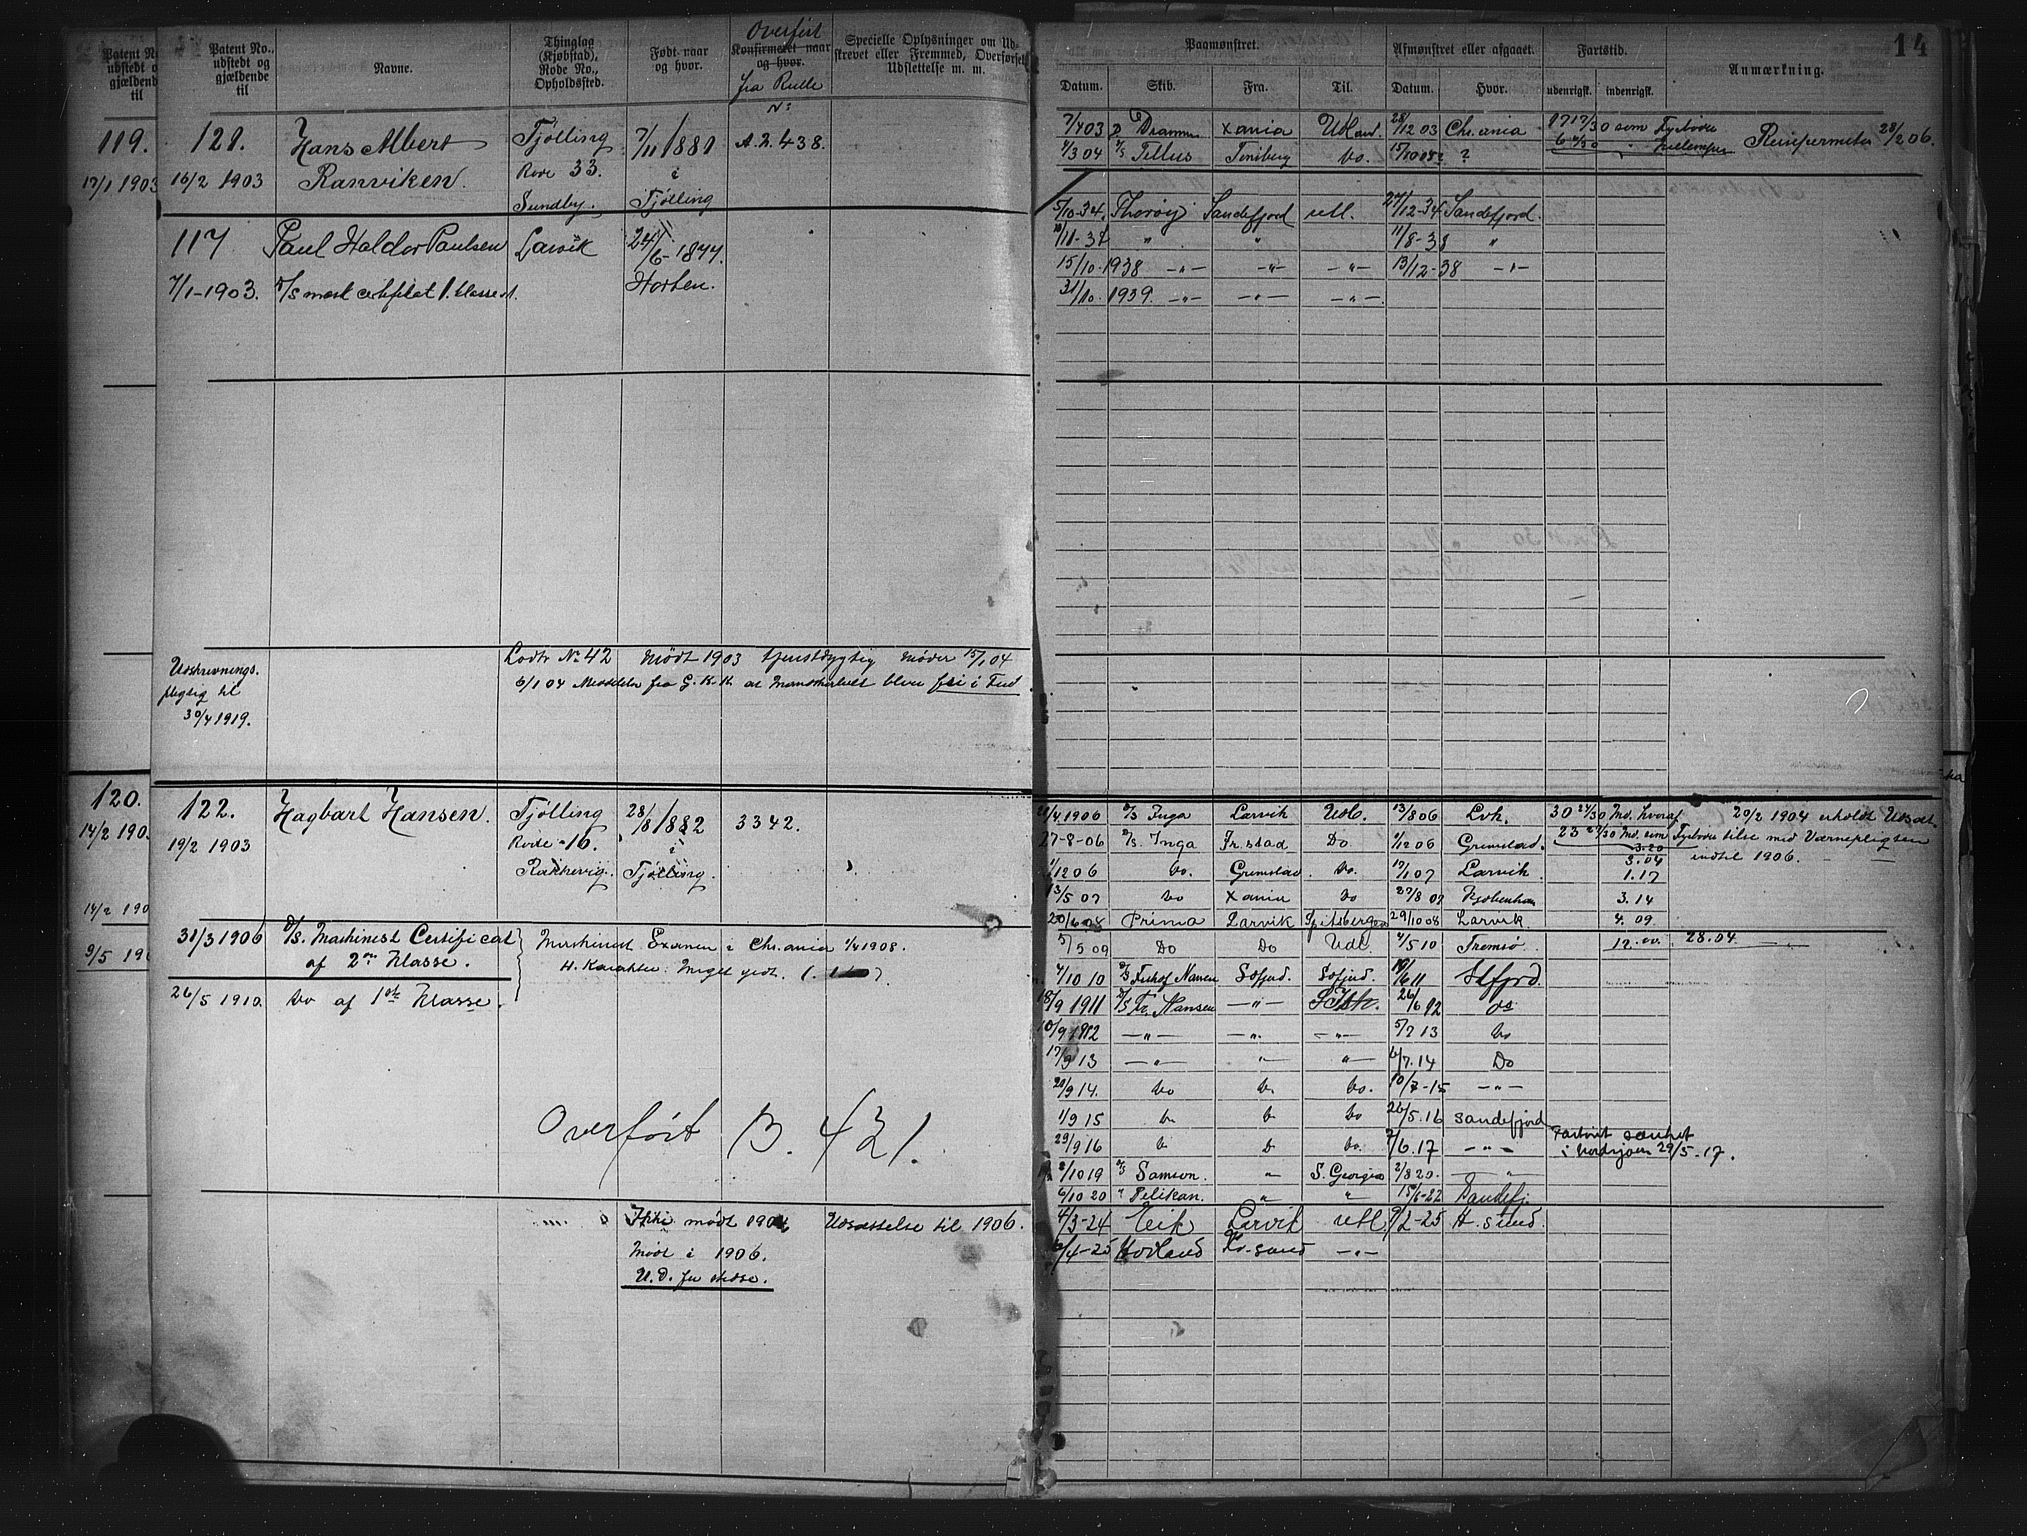 14
Patent No. udstedt og gjældende til
Patent No., udstedt og gjældende til
Navne.
Thinglag (Kjøbstad), Rode No., Opholdssted.
Født naar og hvor.
Overført
Konfirmeret naar og hvor.
fra Rulle
No
Specielle Oplysninger om Udstrevet eller Fremmed, Overførsel, Udslettelse m. m.
Paamønstret.
Afmønstret eller afgaaet.
Fartstid.
Anmærkning.
Datum. Skib. Fra. Til. Datum. Hvor. udenrigsk. indenrigsk.
119.
17/1 1903
121.
16/2 1903
Hans Albert
Ranviken.
Tjølling
Rode 33.
Sundby.
7/11 1881
i
Tjølling
A.2.438.
7/4 03 Drammen Xania Udland 28/12 03 Chr.ania
1/3 04 Tellus Tønsberg Do. ?
som Fyrbøder
Reisepermiter 28/2 06.
117
7/1-1903.
Paul Haldor Paulsen
mask certifikat 1. klasse
Larvik
24/6-1877.
Horten.
5/10-34. Thorøy Sandefjord utl. 27/12-34 Sandefjord.
" " 11/8-38 "
15/10-1938 -"- -"- -"- 13/12-38 -"-
31/10. 1939. -"- -"- -"-
Udskrivnings.
pligtig til
30/4 1919.
Lodtr No 42 Mødt 1903 tjenstdygtig møder 15/1 04
6/1 04 Meddelr fra G.K.K. at Mandskabet blev fri i Fred
120.
14/2 190
14/2 190
9/5 19
122.
19/2 1903
Hagbart Hansen.
Tjølling
Rode 16.
Rakkevig.
28/8 1882
i
Tjølling.
3342.
21/4 1906 D/S Inga Larvik Udl. 13/8 06 Lvk. 30 24/30 Md. hvoraf 20/2 1904 erholdt Udsæt-
27-8-06 D/S Inga Fr.stad Do 1/12 06 Grimstad. 23 Md. som Fyrbøder telse med Værnepligten
3.20
3.04
indtil 1906.
1/12 06 Do. Grimstad. Do. 17/1 07 Larvik. 1.17
13/5 07 Do Xania Do 27/8 07 Kjøbenhavn 3.14
20/6 08 Prima Larvik Spitsbergen 29/10 08 Larvik 4.09.
5/5 09 Do Do Udl. 4/5 10 Tromsø 12.00. 28.04.
31/3 1906
D/S. Maskinist Certificat
af 2en Klasse.
Maskinist Examen i Chr.ania 1/4 1908.
H. Karakter: Meget godt.
26/5 1910. Do af 1ste Klasse.
4/10 10 D/S Fridtjof Nansen Sdfjord. Sdfjord. 19/6 11 Sdfjord.
18/9 1911 D/S Fr. Nansen -"- 26/6 12 Do
10/9 1912 -"- -"- -"- 5/7 13 Do
17/9 13 -"- " " 6/7. 14 Do
20/9 14. Do Do. Do. 10/7-15 -"-
1/9 15 Do 26/5.16 Sandefjord
29/9 16 D Do. 7/6.17 -"-
Fartøiet sænket
i Nordsjøen 29/5-17.
2/10 19 D/S Samson. " S. Georgia 2/8 20. "
6/10 20 " Pelikan. " " 15/6-22 Sandefj.
4/3-24 Eik Larvik utl 9/2-25 H. sund.
6/4-25 Hovland Kr.sand -"-
Overført B. 421.
Ikke mødt 1904 Udsættelse til 1906.
Mødt i 1906.
U.D. for disse.